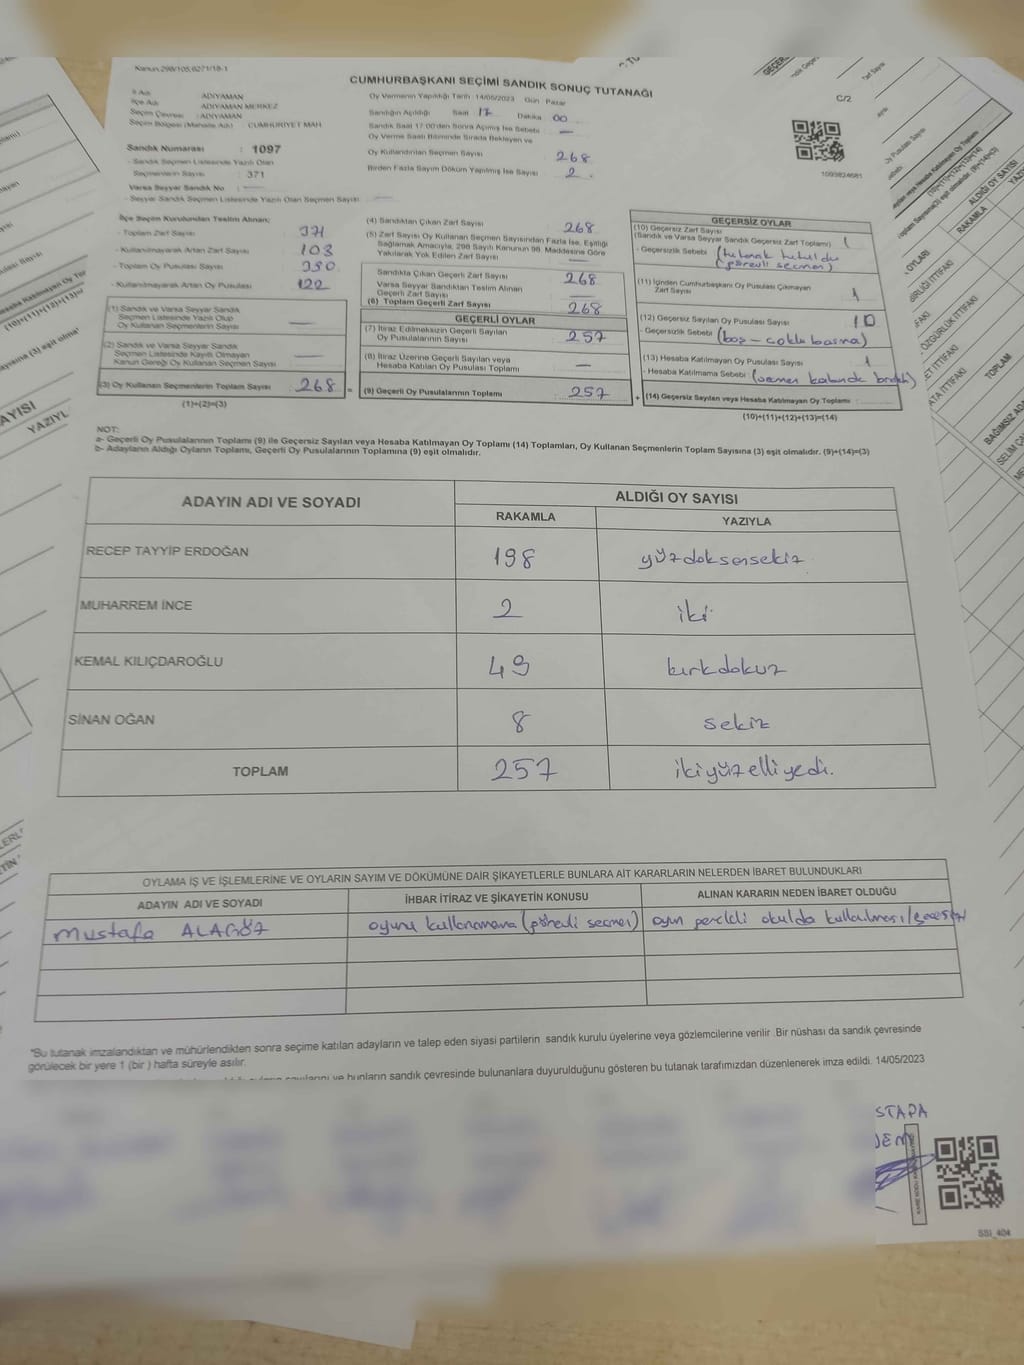 Kanun:298/105,6271/18-1
CUMHURBAŞKANI SEÇİMİ SANDIK SONUÇ TUTANAĞI
C/2
İl Adı ADIYAMAN
İlçe Adı ADIYAMAN MERKEZ
Seçim Çevresi : ADIYAMAN
Seçim Bölgesi (Mahalle Adı) : CUMHURİYET MAH
Sandık Numarası : 1097
- Sandık Seçmen Listesinde Yazılı Olan
Seçmenlerin Sayısı : 371
Varsa Seyyar Sandık No : —
- Seyyar Sandık Seçmen Listesinde Yazılı Olan Seçmen Sayısı: —
Oy Vermenin Yapıldığı Tarih :14/05/2023 Gün : Pazar
Sandığın Açıldığı Saat 17 Dakika 00
Sandık Saat 17:00'den Sonra Açılmış İse Sebebi —
Oy Verme Saati Bitiminde Sırada Bekleyen ve
Oy Kullandırılan Seçmen Sayısı 268
Birden Fazla Sayım Döküm Yapılmış İse Sayısı 2
1093824681
İlçe Seçim Kurulundan Teslim Alınan;
- Toplam Zarf Sayısı 371
- Kullanılmayarak Artan Zarf Sayısı 103
- Toplam Oy Pusulası Sayısı 390
- Kullanılmayarak Artan Oy Pusulası 122
(1) Sandık ve Varsa Seyyar Sandık
Seçmen Listesinde Yazılı Olup
Oy Kullanan Seçmenlerin Sayısı —
(2) Sandık ve Varsa Seyyar Sandık
Seçmen Listesinde Kayıtlı Olmayan
Kanun Gereği Oy Kullanan Seçmen Sayısı —
(3) Oy Kullanan Seçmenlerin Toplam Sayısı 268 =
(1)+(2)=(3)
(4) Sandıktan Çıkan Zarf Sayısı 268
(5) Zarf Sayısı Oy Kullanan Seçmen Sayısından Fazla İse, Eşitliği
Sağlamak Amacıyla, 298 Sayılı Kanunun 98. Maddesine Göre
Yakılarak Yok Edilen Zarf Sayısı —
Sandıkta Çıkan Geçerli Zarf Sayısı 268
Varsa Seyyar Sandıktan Teslim Alınan
Geçerli Zarf Sayısı —
(6) Toplam Geçerli Zarf Sayısı 268
GEÇERLİ OYLAR
(7) İtiraz Edilmeksizin Geçerli Sayılan
Oy Pusulalarının Sayısı 257
(8) İtiraz Üzerine Geçerli Sayılan veya
Hesaba Katılan Oy Pusulası Toplamı —
(9) Geçerli Oy Pusulalarının Toplamı 257 +
GEÇERSİZ OYLAR
(10) Geçersiz Zarf Sayısı
(Sandık ve Varsa Seyyar Sandık Geçersiz Zarf Toplamı) 1
- Geçersizlik Sebebi (tutanak tutuldu
(görevli seçmen)
(11) İçinden Cumhurbaşkanı Oy Pusulası Çıkmayan
Zarf Sayısı 1
(12) Geçersiz Sayılan Oy Pusulası Sayısı 10
- Geçersizlik Sebebi (boş - çoklu basma)
(13) Hesaba Katılmayan Oy Pusulası Sayısı 1
- Hesaba Katılmama Sebebi :
(14) Geçersiz Sayılan veya Hesaba Katılmayan Oy Toplamı :
(10)+(11)+(12)+(13)=(14)
NOT:
a- Geçerli Oy Pusulalarının Toplamı (9) ile Geçersiz Sayılan veya Hesaba Katılmayan Oy Toplamı (14) Toplamları, Oy Kullanan Seçmenlerin Toplam Sayısına (3) eşit olmalıdır. (9)+(14)=(3)
b- Adayların Aldığı Oyların Toplamı, Geçerli Oy Pusulalarının Toplamına (9) eşit olmalıdır.
ADAYIN ADI VE SOYADI ALDIĞI OY SAYISI
RAKAMLA YAZIYLA
RECEP TAYYİP ERDOĞAN 198 yüzdoksansekiz
MUHARREM İNCE 2 iki
KEMAL KILIÇDAROĞLU 49 kırkdokuz
SİNAN OĞAN 8 sekiz
TOPLAM 257 ikiyüzelliyedi.
OYLAMA İŞ VE İŞLEMLERİNE VE OYLARIN SAYIM VE DÖKÜMÜNE DAİR ŞİKAYETLERLE BUNLARA AİT KARARLARIN NELERDEN İBARET BULUNDUKLARI
ADAYIN ADI VE SOYADI İHBAR İTİRAZ VE ŞİKAYETİN KONUSU ALINAN KARARIN NEDEN İBARET OLDUĞU
Mustafa ALAGÖZ oyunu kullanamama (görevli seçmen) oyun okulda kullanılması
*Bu tutanak imzalandıktan ve mühürlendikten sonra seçime katılan adayların ve talep eden siyasi partilerin sandık kurulu üyelerine veya gözlemcilerine verilir .Bir nüshası da sandık çevresinde
görülecek bir yere 1 (bir ) hafta süreyle asılır.
ve bunların sandık çevresinde bulunanlara duyurulduğunu gösteren bu tutanak tarafımızdan düzenlenerek imza edildi. 14/05/2023
STAPA
SSI_404